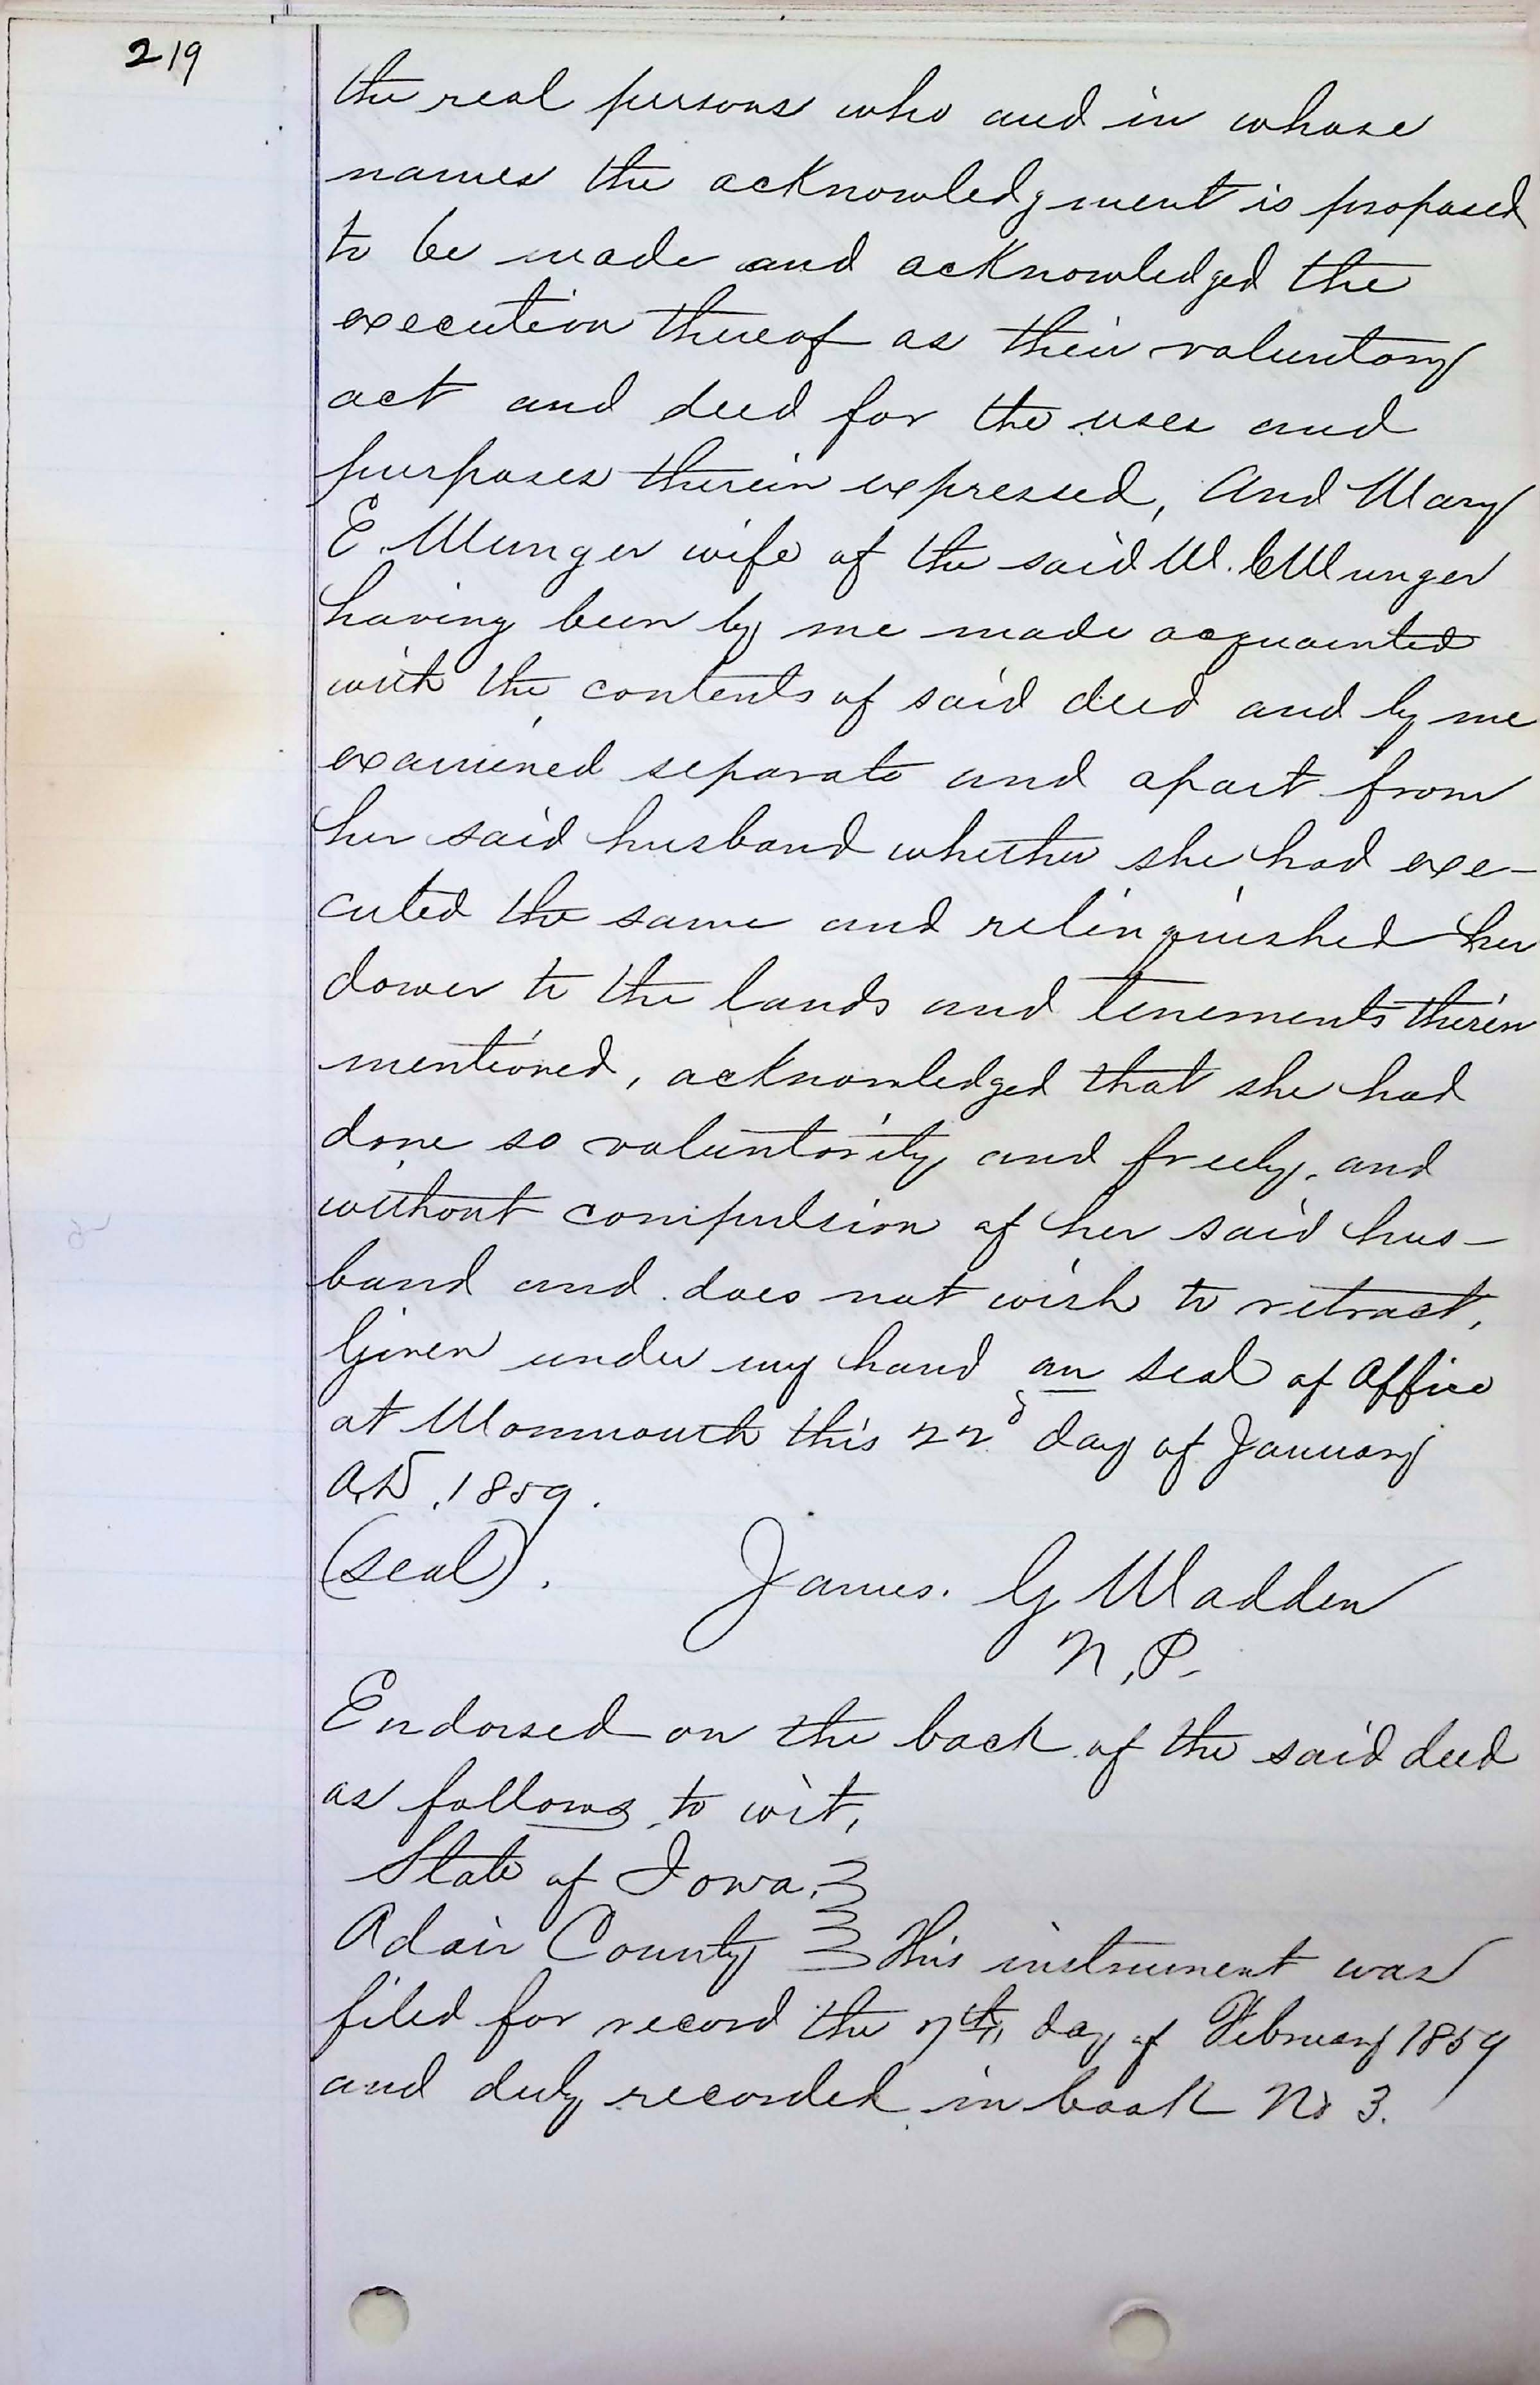 219
the real persons who and in whose
names the acknowledgment is proposed
to be made and acknowledged the
execution thereof as their voluntary
act and deed for the uses and
purposes therein expressed, And Mary
E. Munger wife of the said W. C Munger
having been by me made acquainted
with the contents of said deed and by me
examined separate and apart from
her said husband whether she had exe-
cuted the same and relinquished her
dower to the lands and tenements therein
mentioned, acknowledged that she had
done so voluntarily and freely, and
without compulsion of her said hus-
band and does not wish to retract,
Given under my hand an seal of Office
at Monmouth this 22d day of January
A.D. 1859.
(seal). James. G Madden
N.P.
Endorsed on the back of the said deed
as follows to wit,
State of Iowa.
Adair County This instrument was
filed for record the 7th day of February 1859
and duly recorded in book No 3.